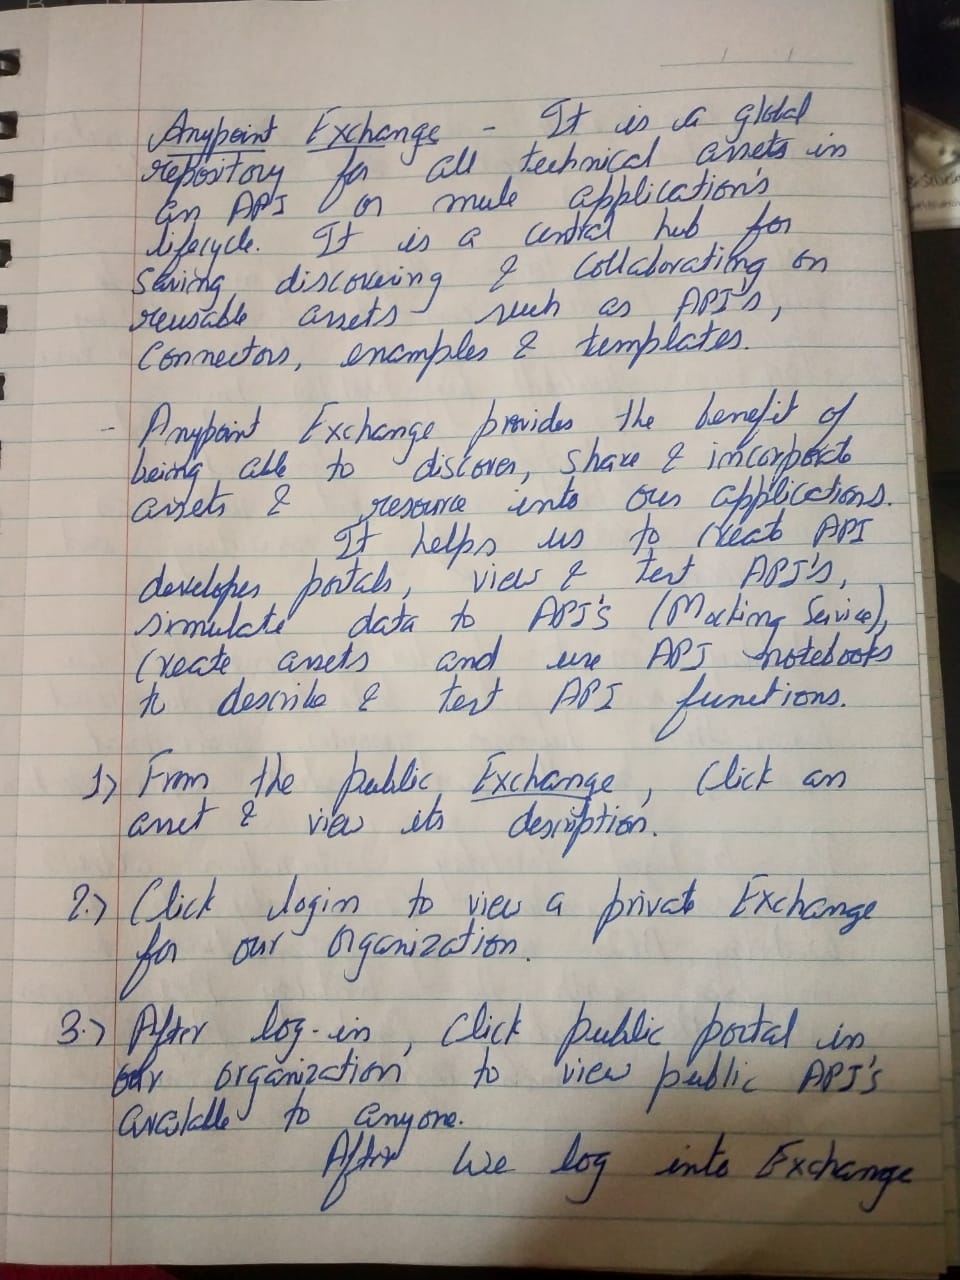 Anypoint Exchange - It is a global
repository for all technical assets in
an API or mule application's
lifecycle. It is a central hub for
saving discovering & collaborating on
reusable assets such as API's,
Connectors, examples & templates.
- Anypoint Exchange provides the benefit of
being able to discover, share & incorporate
assets & resource into our applications.
It helps us to create API
developer portals, view & test API's,
simulate data to API's (Mocking Service),
Create assets and use API notebooks
to describe & test API functions.
1) From the public Exchange, Click an
asset & view its description.
2.) Click login to view a private Exchange
for our organization.
3.) After log-in, Click public portal in
our organization to view public API's
available to anyone.
After we log into Exchange